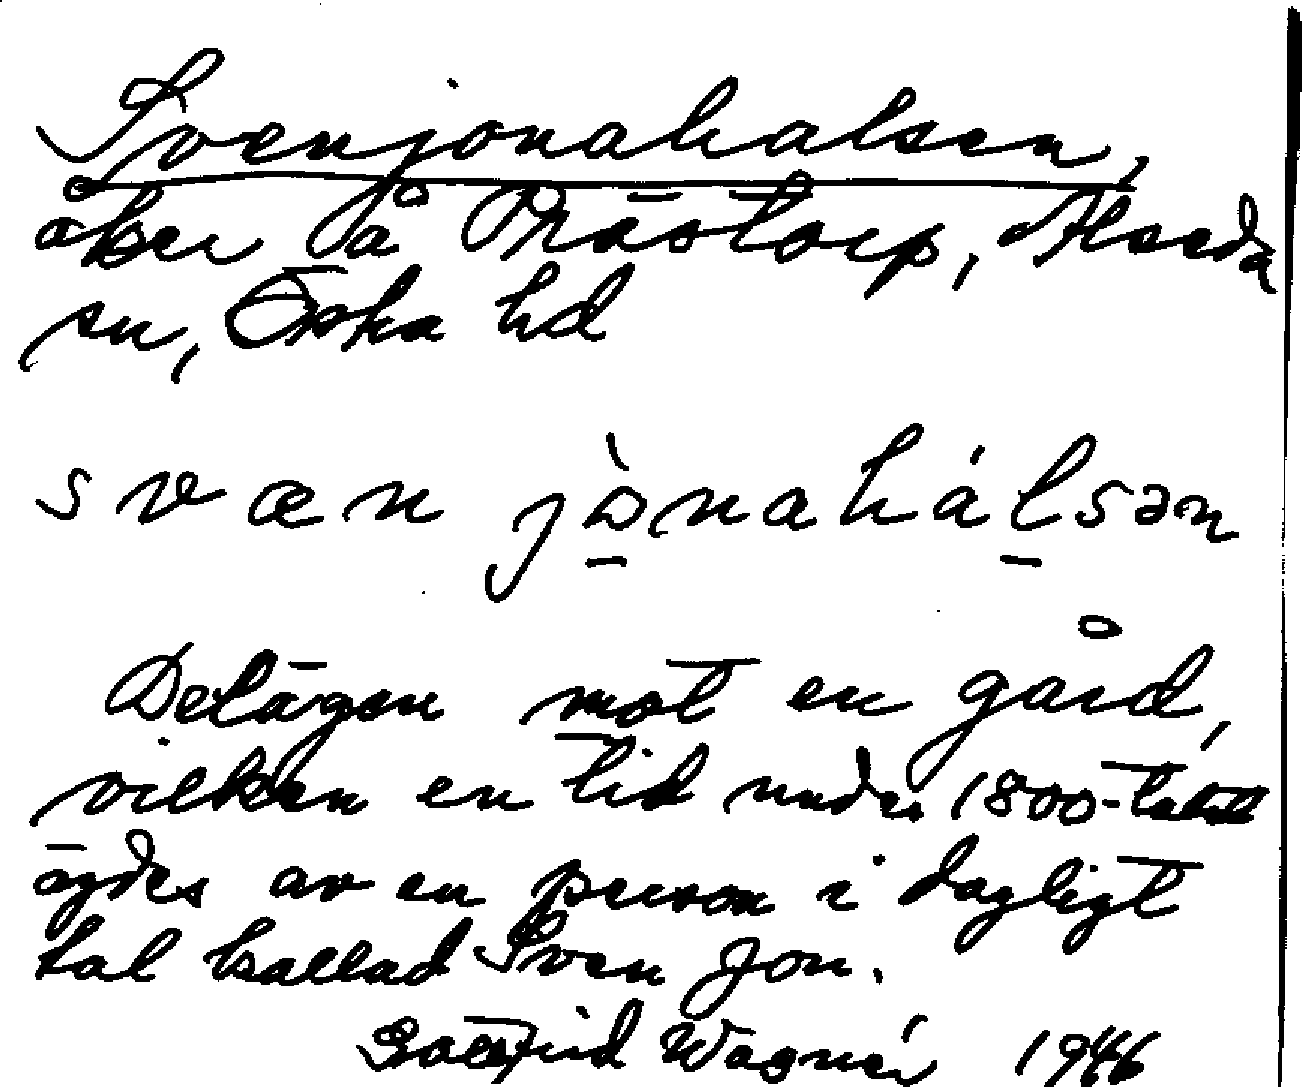 Svenjonahalsen,
åker på Prästorp, Alseda
sn, Östra hd
svæn jònahálsən
Delägen mot en gård,
vilken en tid under 1800-talet
ägdes av en person i dagligt
tal kallad Sven Jon.
Gottfrid Wagnér 1946